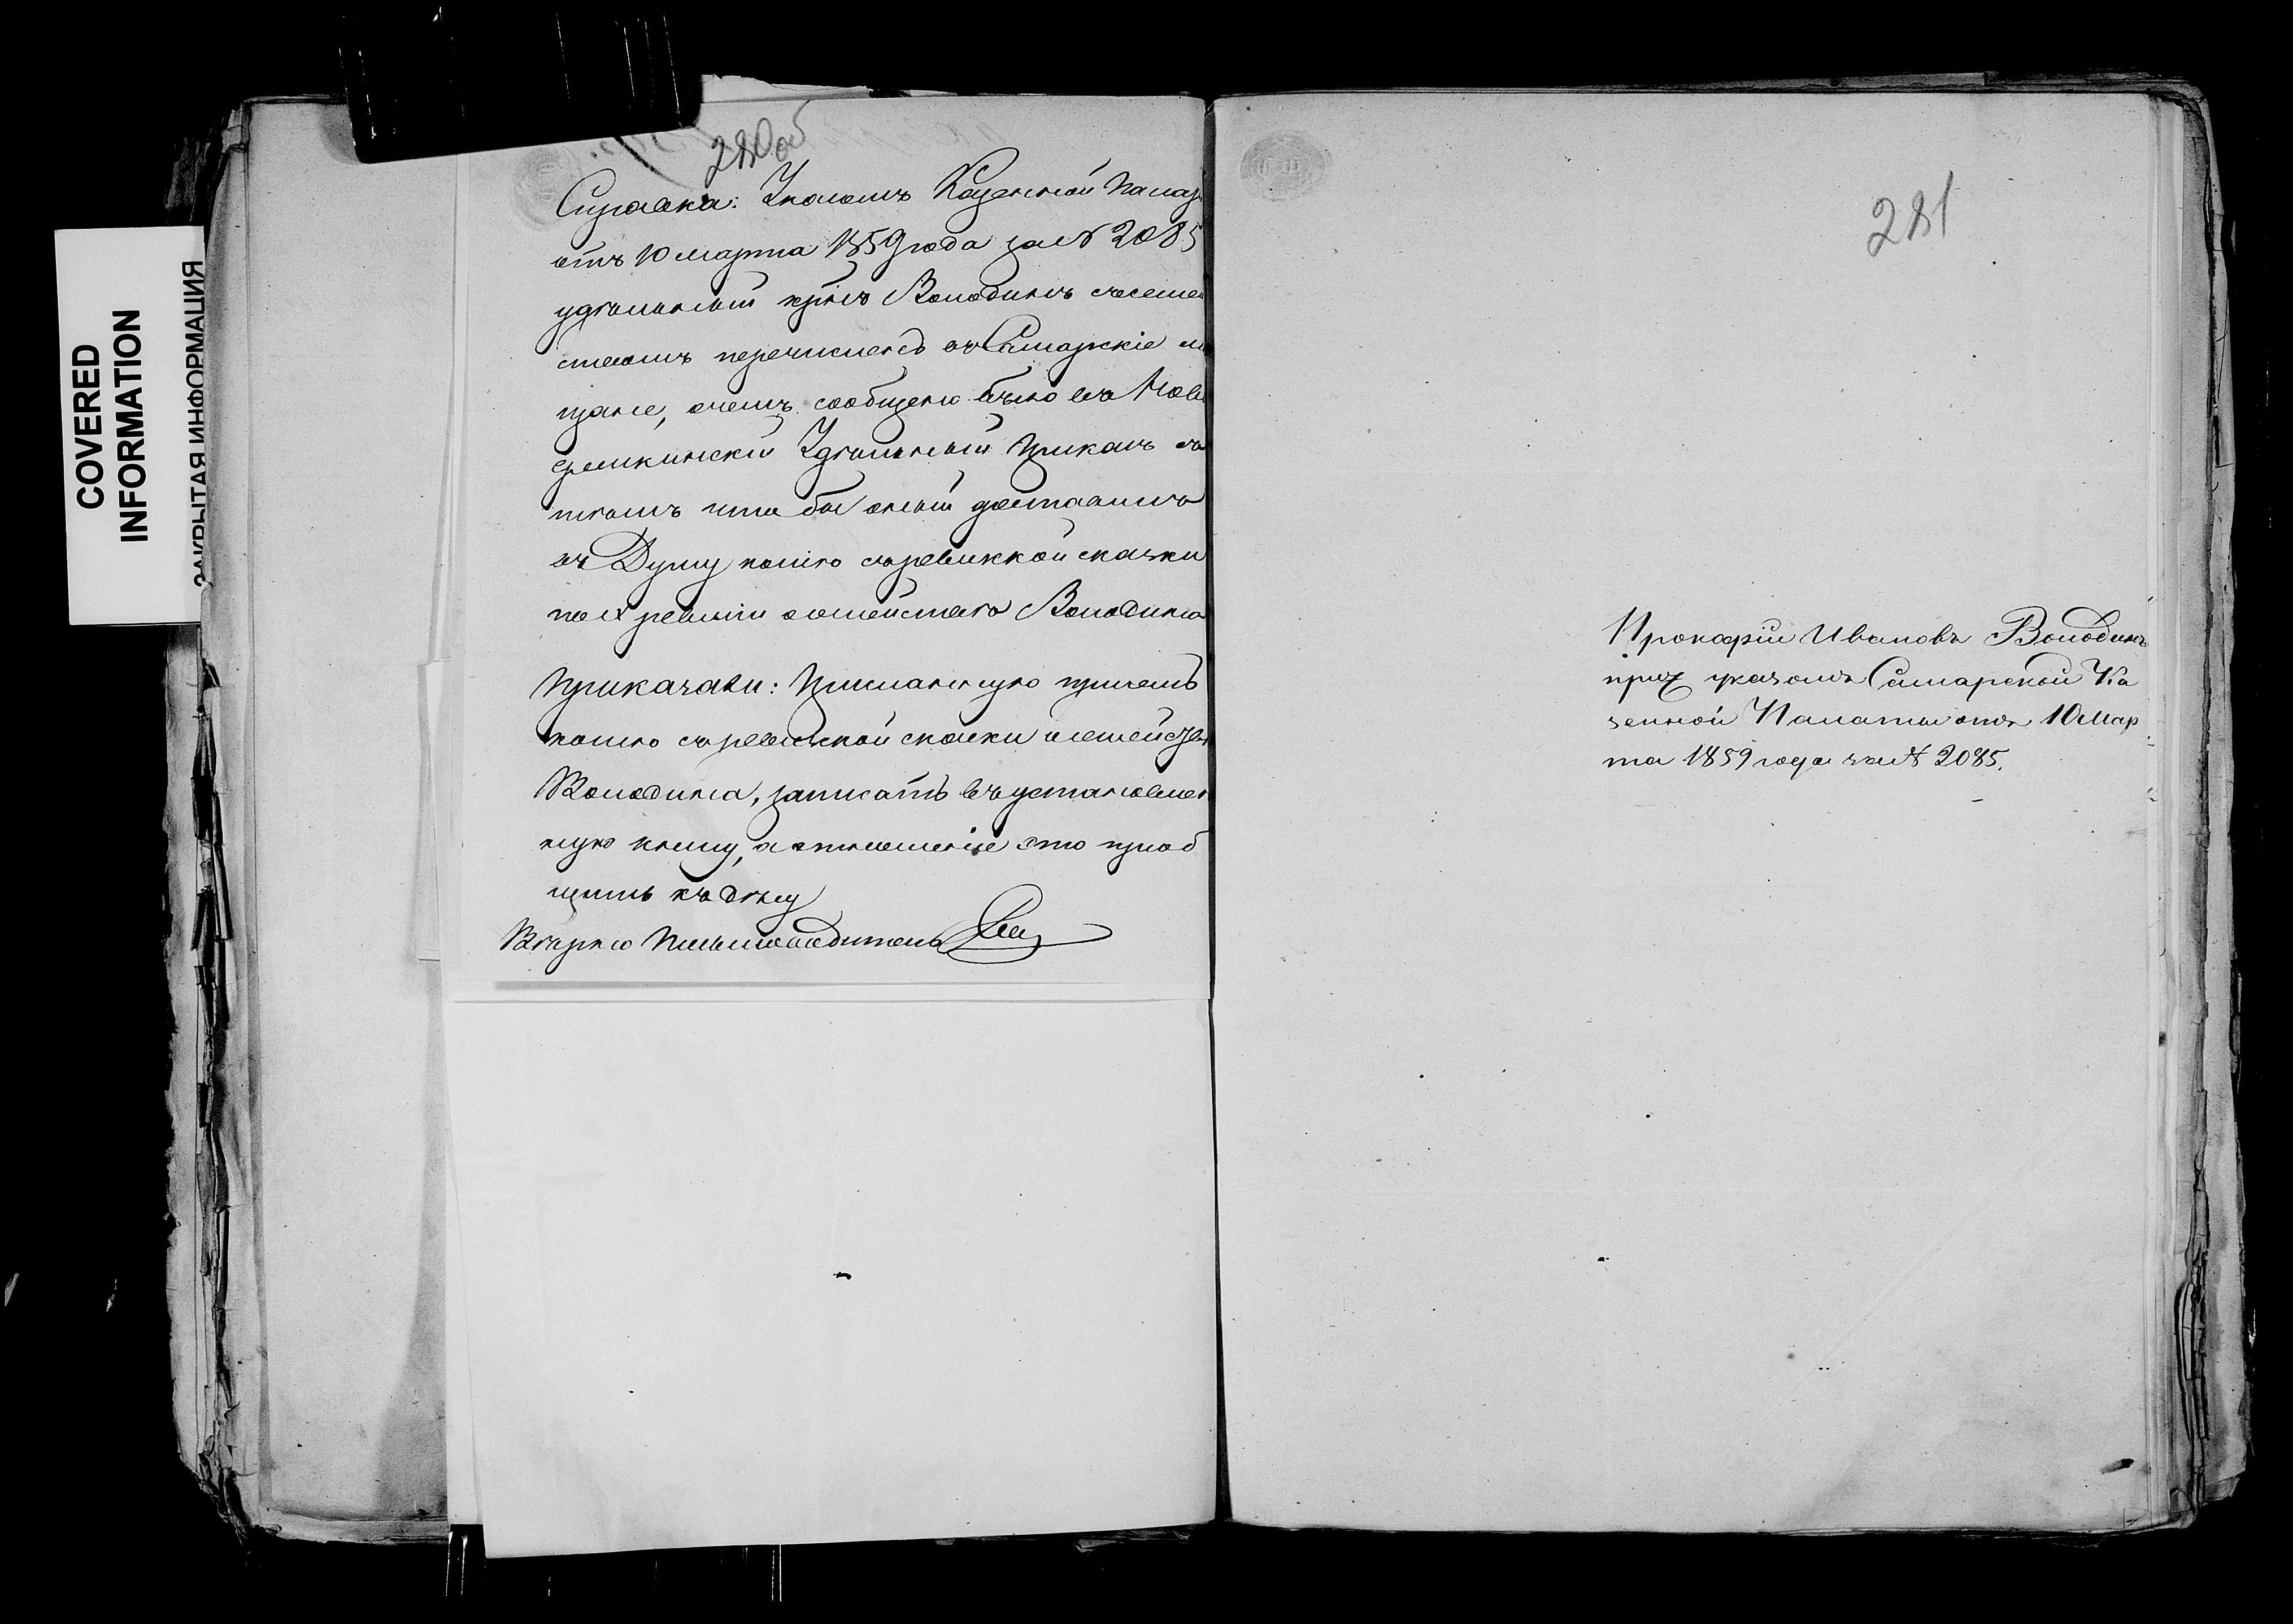 COVERED
INFORMATION
ЗАКРЫТАЯ ИНФОРМАЦИЯ
280об
Справка: Указомъ Казенной Палат
отъ 10 марта 1859 года за № 2085
удѣльный крнъ Володинъ съ семей
ствомъ перечисленъ въ Самарскіе мѣ
щане, о чемъ сообщено было въ Ново
Удѣльный Приказъ съ
тѣмъ что бы оный доставилъ
въ Думу копію съ ревижкой скажки
по X ревизіи о семействѣ Володина
Приказали: Присланную при семъ
копію съ ревизской скаски о семейств
Володина, записать въ установлен
ную книгу, а отношеніе это пріоб
щить къ дѣлу
Вѣрно Письмоводитель
281
Прокофій Ивановъ Володинъ
прич указомъ Самарской Ка
зенной Палаты отъ 10 Мар
та 1859 года за № 2085.